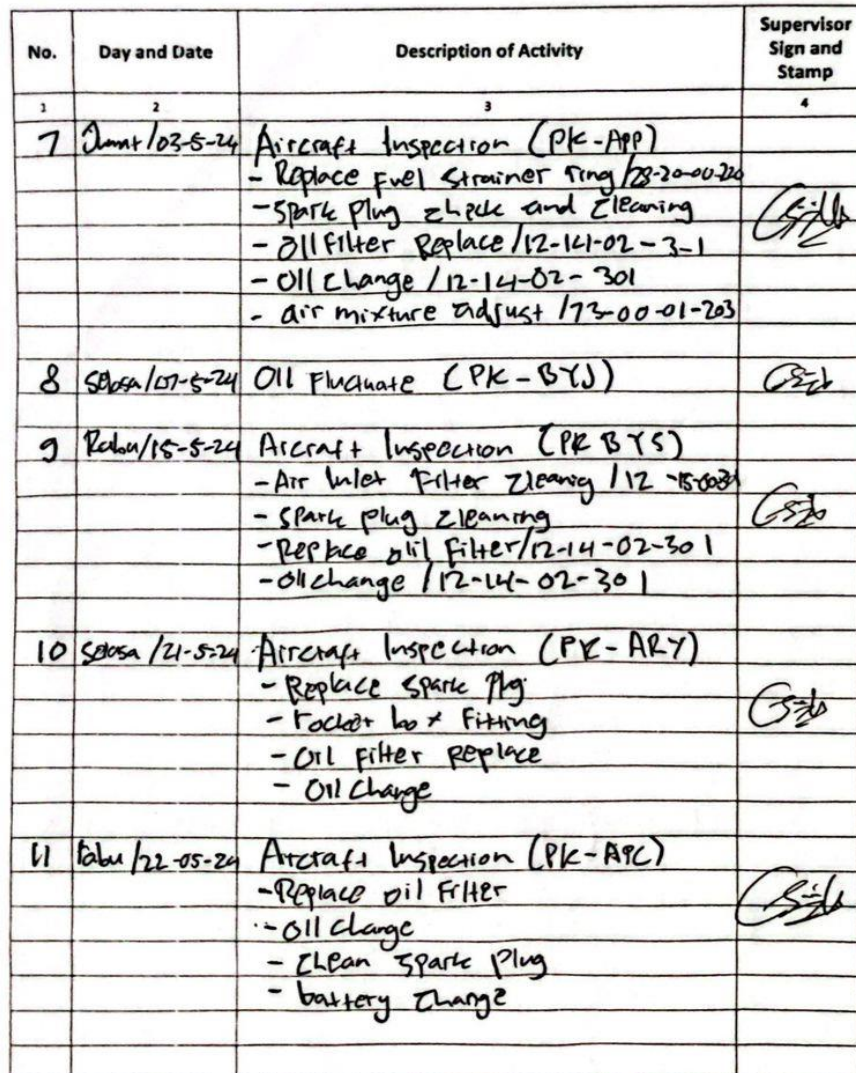 No. Day and Date Description of Activity Supervisor Sign and Stamp
1 2 3 4
7 Jumat/03-5-24 Aircraft Inspection (PK-APP)
- Replace Fuel Strainer ring /28-20-00-220
- Spark plug check and cleaning
- Oil Filter Replace /12-14-02-3-1
- Oil change /12-14-02-301
- air mixture adjust /73-00-01-203
8 Selasa/07-5-24 Oil Fluctuate (PK-BYJ)
9 Rabu/15-5-24 Aircraft Inspection (PK BYS)
- Air Inlet Filter cleanig /12
- Spark plug cleaning
- Replace oil Filter/12-14-02-301
- Oil change /12-14-02-301
10 Selasa /21-5-24 Aircraft Inspection (PK-ARY)
- Replace spark plg
- rocker box Fitting
- Oil Filter Replace
- Oil Change
11 Rabu /22-05-24 Aircraft Inspection (PK-APC)
- Replace oil Filter
- Oil change
- clean spark plug
- battery change